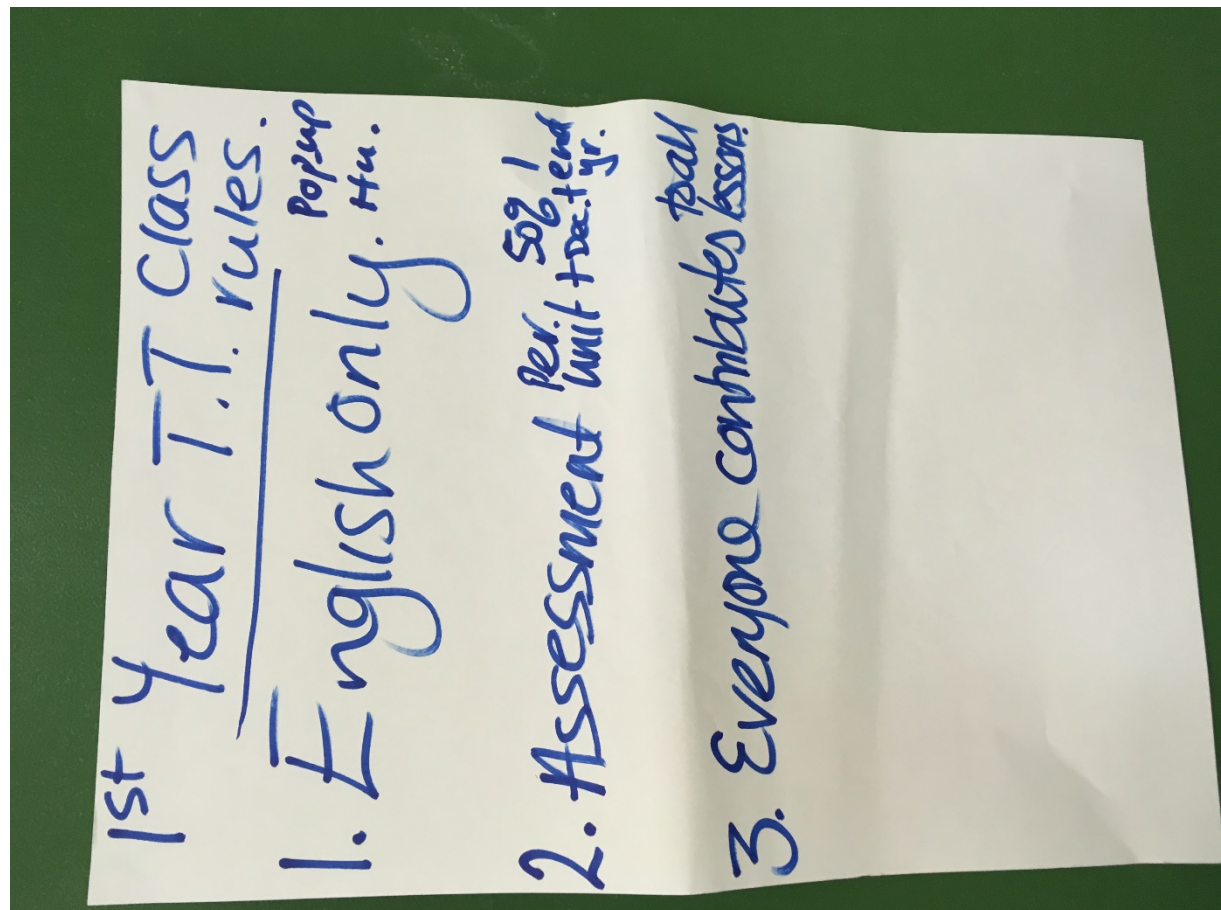 1st Year T.T. Class rules.
1. English only. Popup Hu.
2. Assessment Per. unit 50% + Dec. + end yr.
3. Everyone contributes to all lessons.